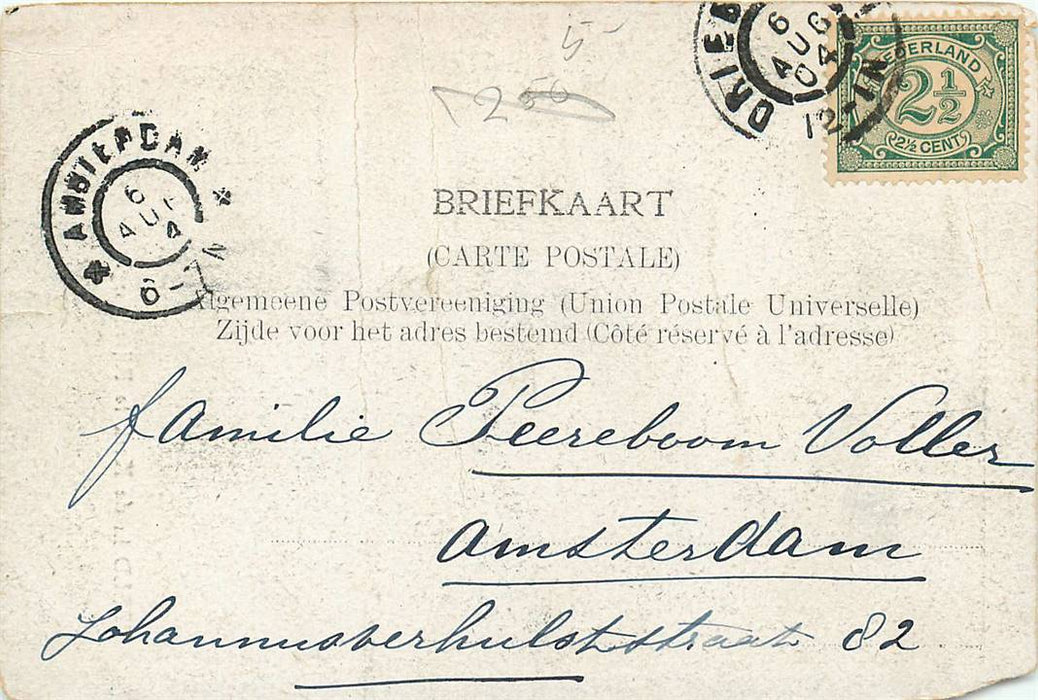 5
250
DRIEB
6 AUG 04
12-1N
NEDERLAND
2½
2½ CENT
AMSTERDAM
6 AU 4
6-7N
BRIEFKAART
(CARTE POSTALE)
Algemeene Postvereeniging (Union Postale Universelle)
Zijde voor het adres bestemd (Côté réservé à l'adresse)
familie Peereboom Voller
Amsterdam
Johannusverhulststraat 82